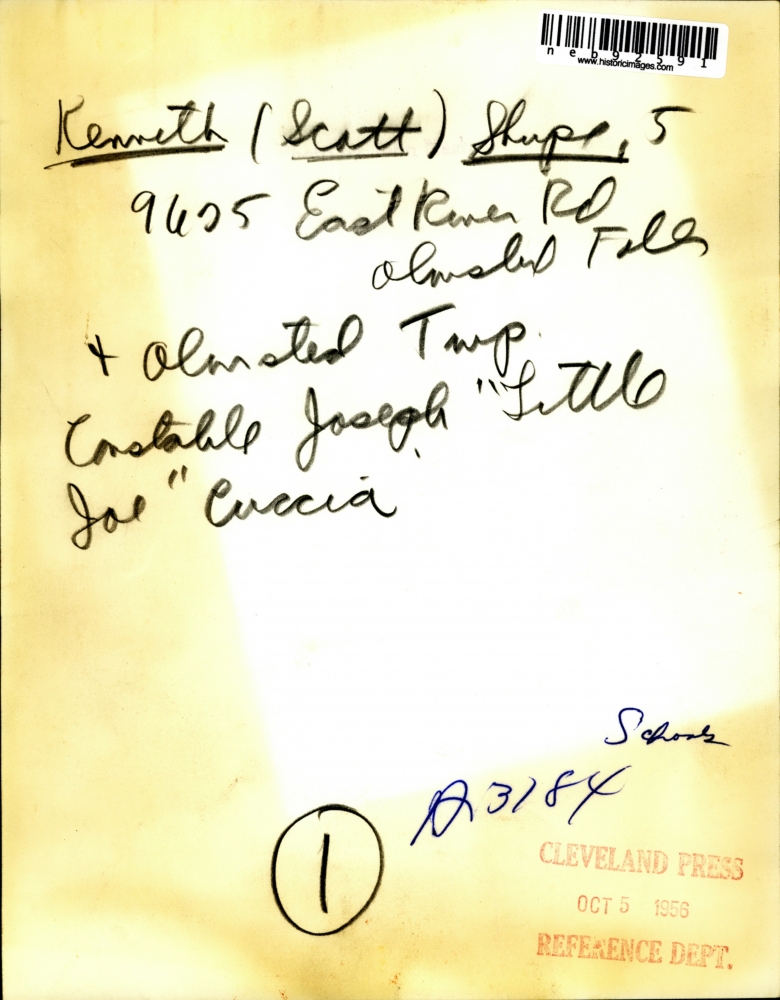 neb92591
www.historicimages.com
Kenneth (Scott) Shupe, 5
9625 East River Rd
Olmsted Falls
+ Olmsted Twp.
Constable Joseph "Little
Joe" Cuccia
Schools
A3184
1
CLEVELAND PRESS
OCT 5 1956
REFERENCE DEPT.